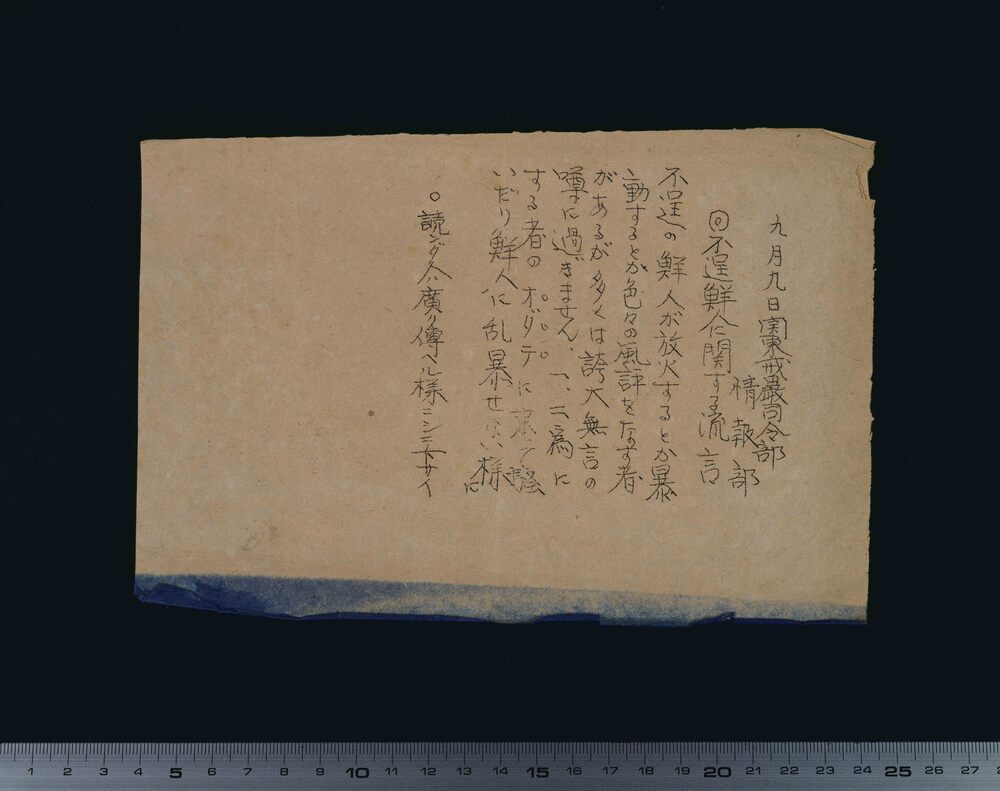 九月九日関東戒嚴司令部
情報部
◎不逞鮮人に関する流言
不逞の鮮人が放火するとか暴
動するとか色々の風評をなす者
があるが多くは誇大無言の
噂に過ぎません、一、二、爲に
する者のオダテに乗て騒
いだり鮮人に乱暴せない様に
○読ンダ人ハ廣ク傳ヘル様ニシテ下サイ
1 2 3 4 5 6 7 8 9 10 11 12 13 14 15 16 17 18 19 20 21 22 23 24 25 26 27